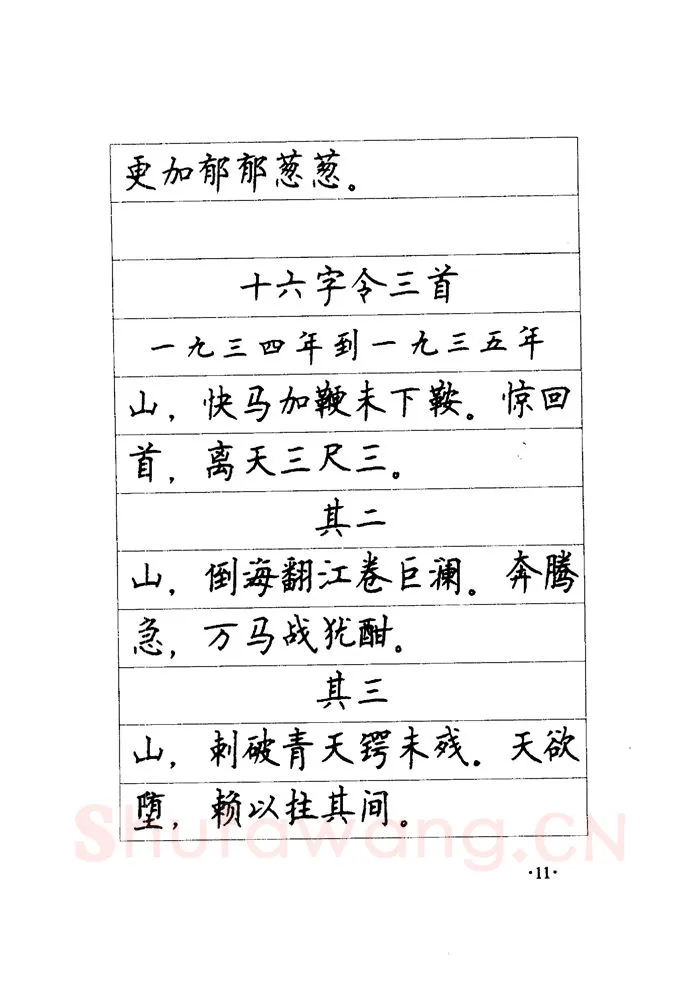 更加郁郁葱葱。
十六字令三首
一九三四年到一九三五年
山，快马加鞭未下鞍。惊回
首，离天三尺三。
其二
山，倒海翻江卷巨澜。奔腾
急，万马战犹酣。
其三
山，刺破青天锷未残。天欲
堕，赖以拄其间。
Shufawang.CN
·11·